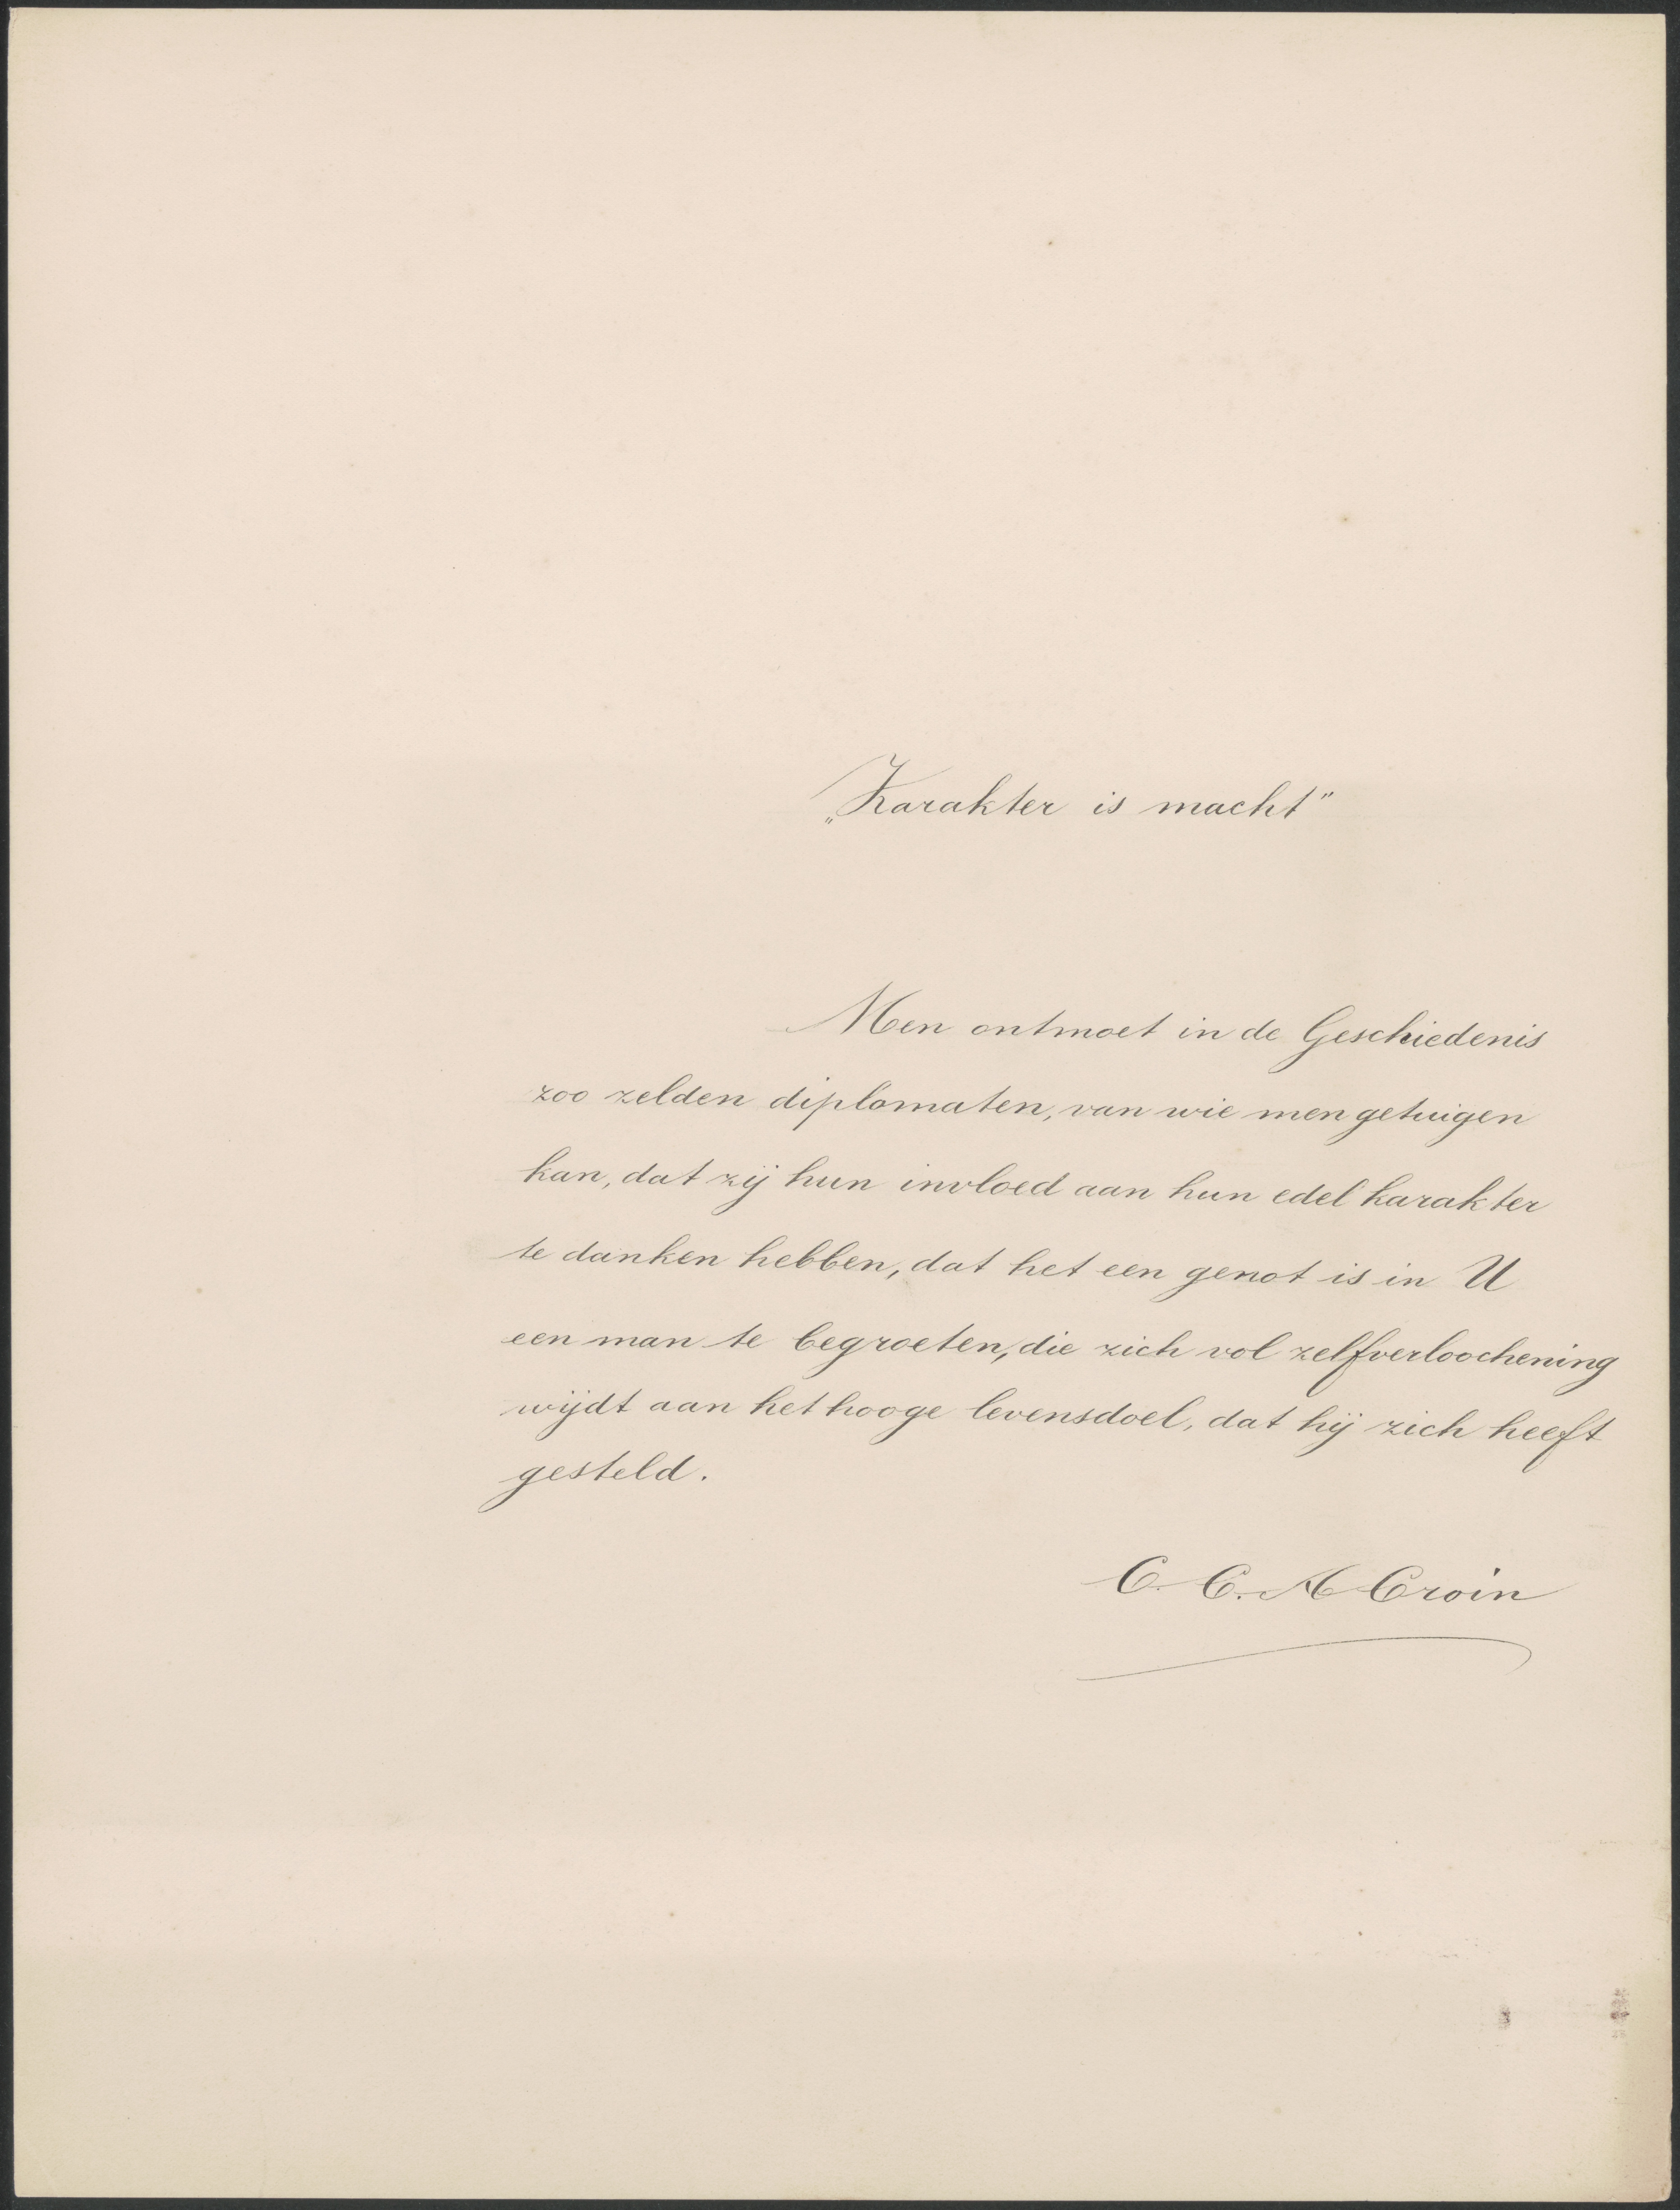 „Karakter is macht"
Men ontmoet in de Geschiedenis
zoo zelden diplomaten, van wie men getuigen
kan, dat zij hun invloed aan hun edel karakter
te danken hebben, dat het een genot is in U
een man te begroeten, die zich vol zelfverloochening
wijdt aan het hooge levensdoel, dat hij zich heeft
gesteld.
C. C. A Croin